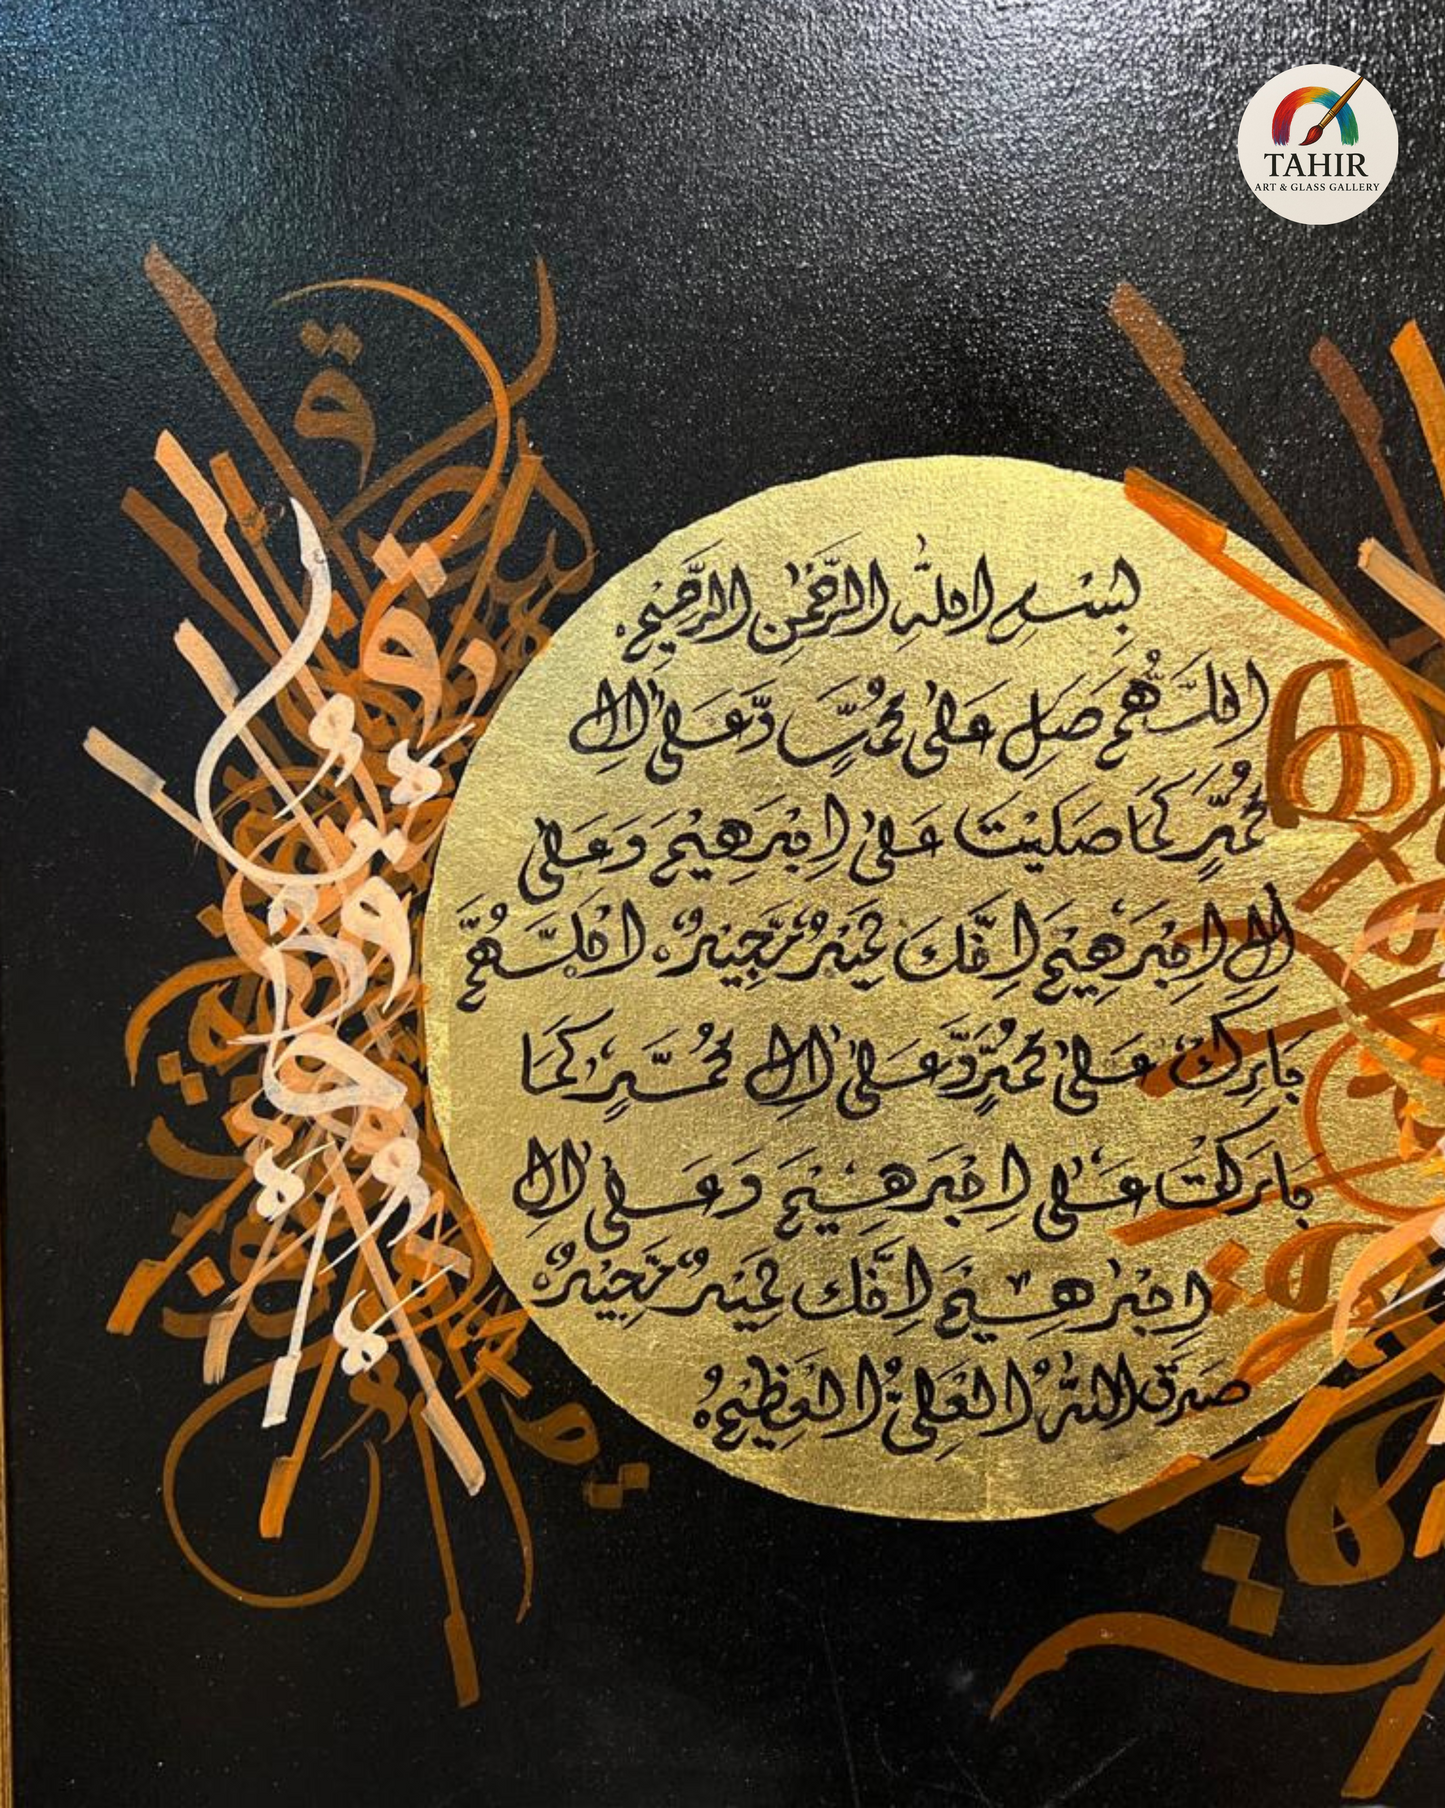 TAHIR
ART & GLASS GALLERY
بسم الله الرحمن الرحيم
اللهم صل على محمد وعلى ال
محمد كما صليت على ابرهيم وعلى
ال ابرهيم انك حميد مجيد اللهم
بارك على محمد وعلى ال محمد كما
باركت على ابرهيم وعلى ال
ابرهيم انك حميد مجيد
صدق الله العلي العظيم